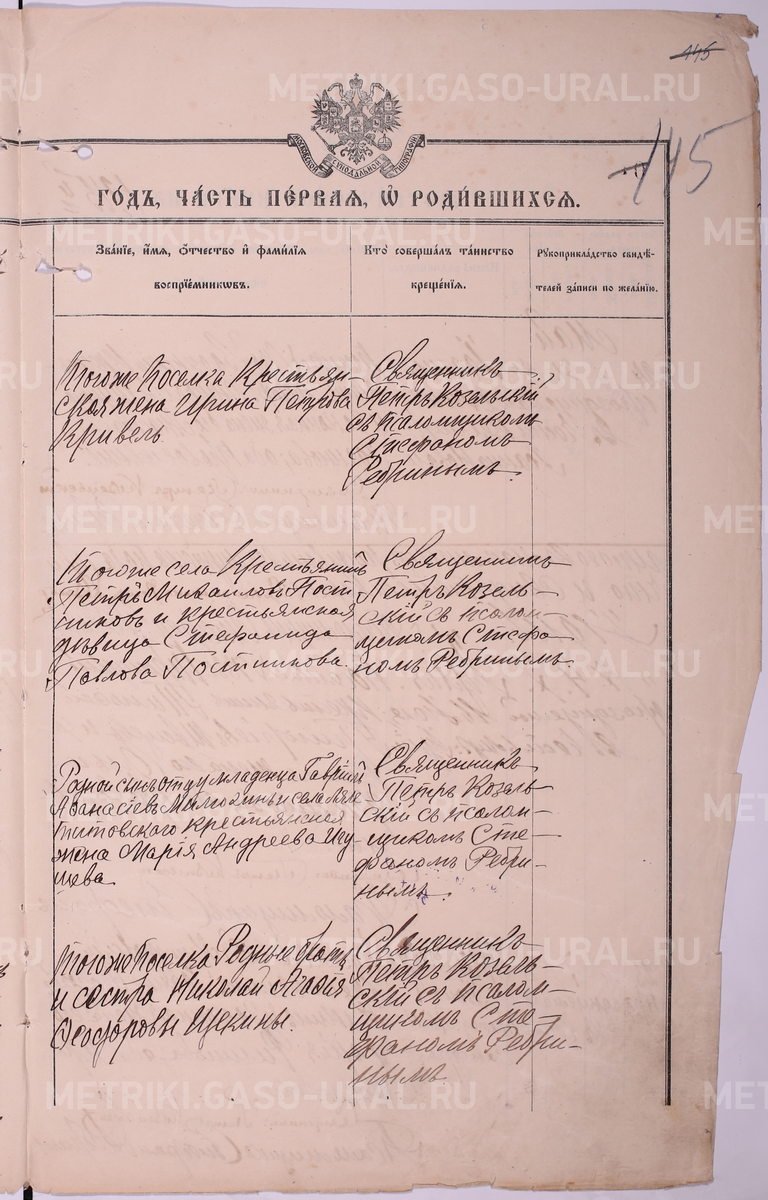 145
145
METRIKI.GASO-URAL.RU
МОСКОВСКОЙ СѴНОДАЛЬНОЙ ТИПОГРАФІИ
ГО́ДЪ, ЧА́СТЬ ПЕ́РВАЯ, Ѡ҆ РОДИ́ВШИХСЯ.
Зва́нїе, и҆́мя, ѻ҆́тчество и҆ фами́лїя
воспрїе́мникѡвъ.
Кто̀ соверша́лъ та́инство
креще́нїя.
Рꙋкоприкла́дство свидѣ́-
телей за́писи по жела́нїю.
Тогоже Поселка Крестьян-
ская жена Ирина Петрова
Кривель
Священникъ
Петръ Козельскій
съ псаломщикомъ
Стефаномъ
Ребринымъ.
Тогоже села Крестьянинъ
Петръ Михаиловъ Пост
никовъ и крестьянская
дѣвица Стефанида
Павлова Постникова.
Священникъ
Петръ Козель-
скій съ псалом-
щикомъ Стефа
номъ Ребринымъ.
Родной сынъ отцу младенца Гавріилъ
Афанасіевъ и села
крестьянская
жена Марія Андреева
Священникъ
Петръ Козель-
скій съ псалом-
щикомъ Сте-
фаномъ Ребри-
нымъ.
Тогоже Поселка Родные братъ
и сестра Николай Агафія
Ѳеодоровы Щекины.
Священникъ
Петръ Козель-
скій съ псалом-
щикомъ Сте-
фаномъ Ребри-
нымъ.